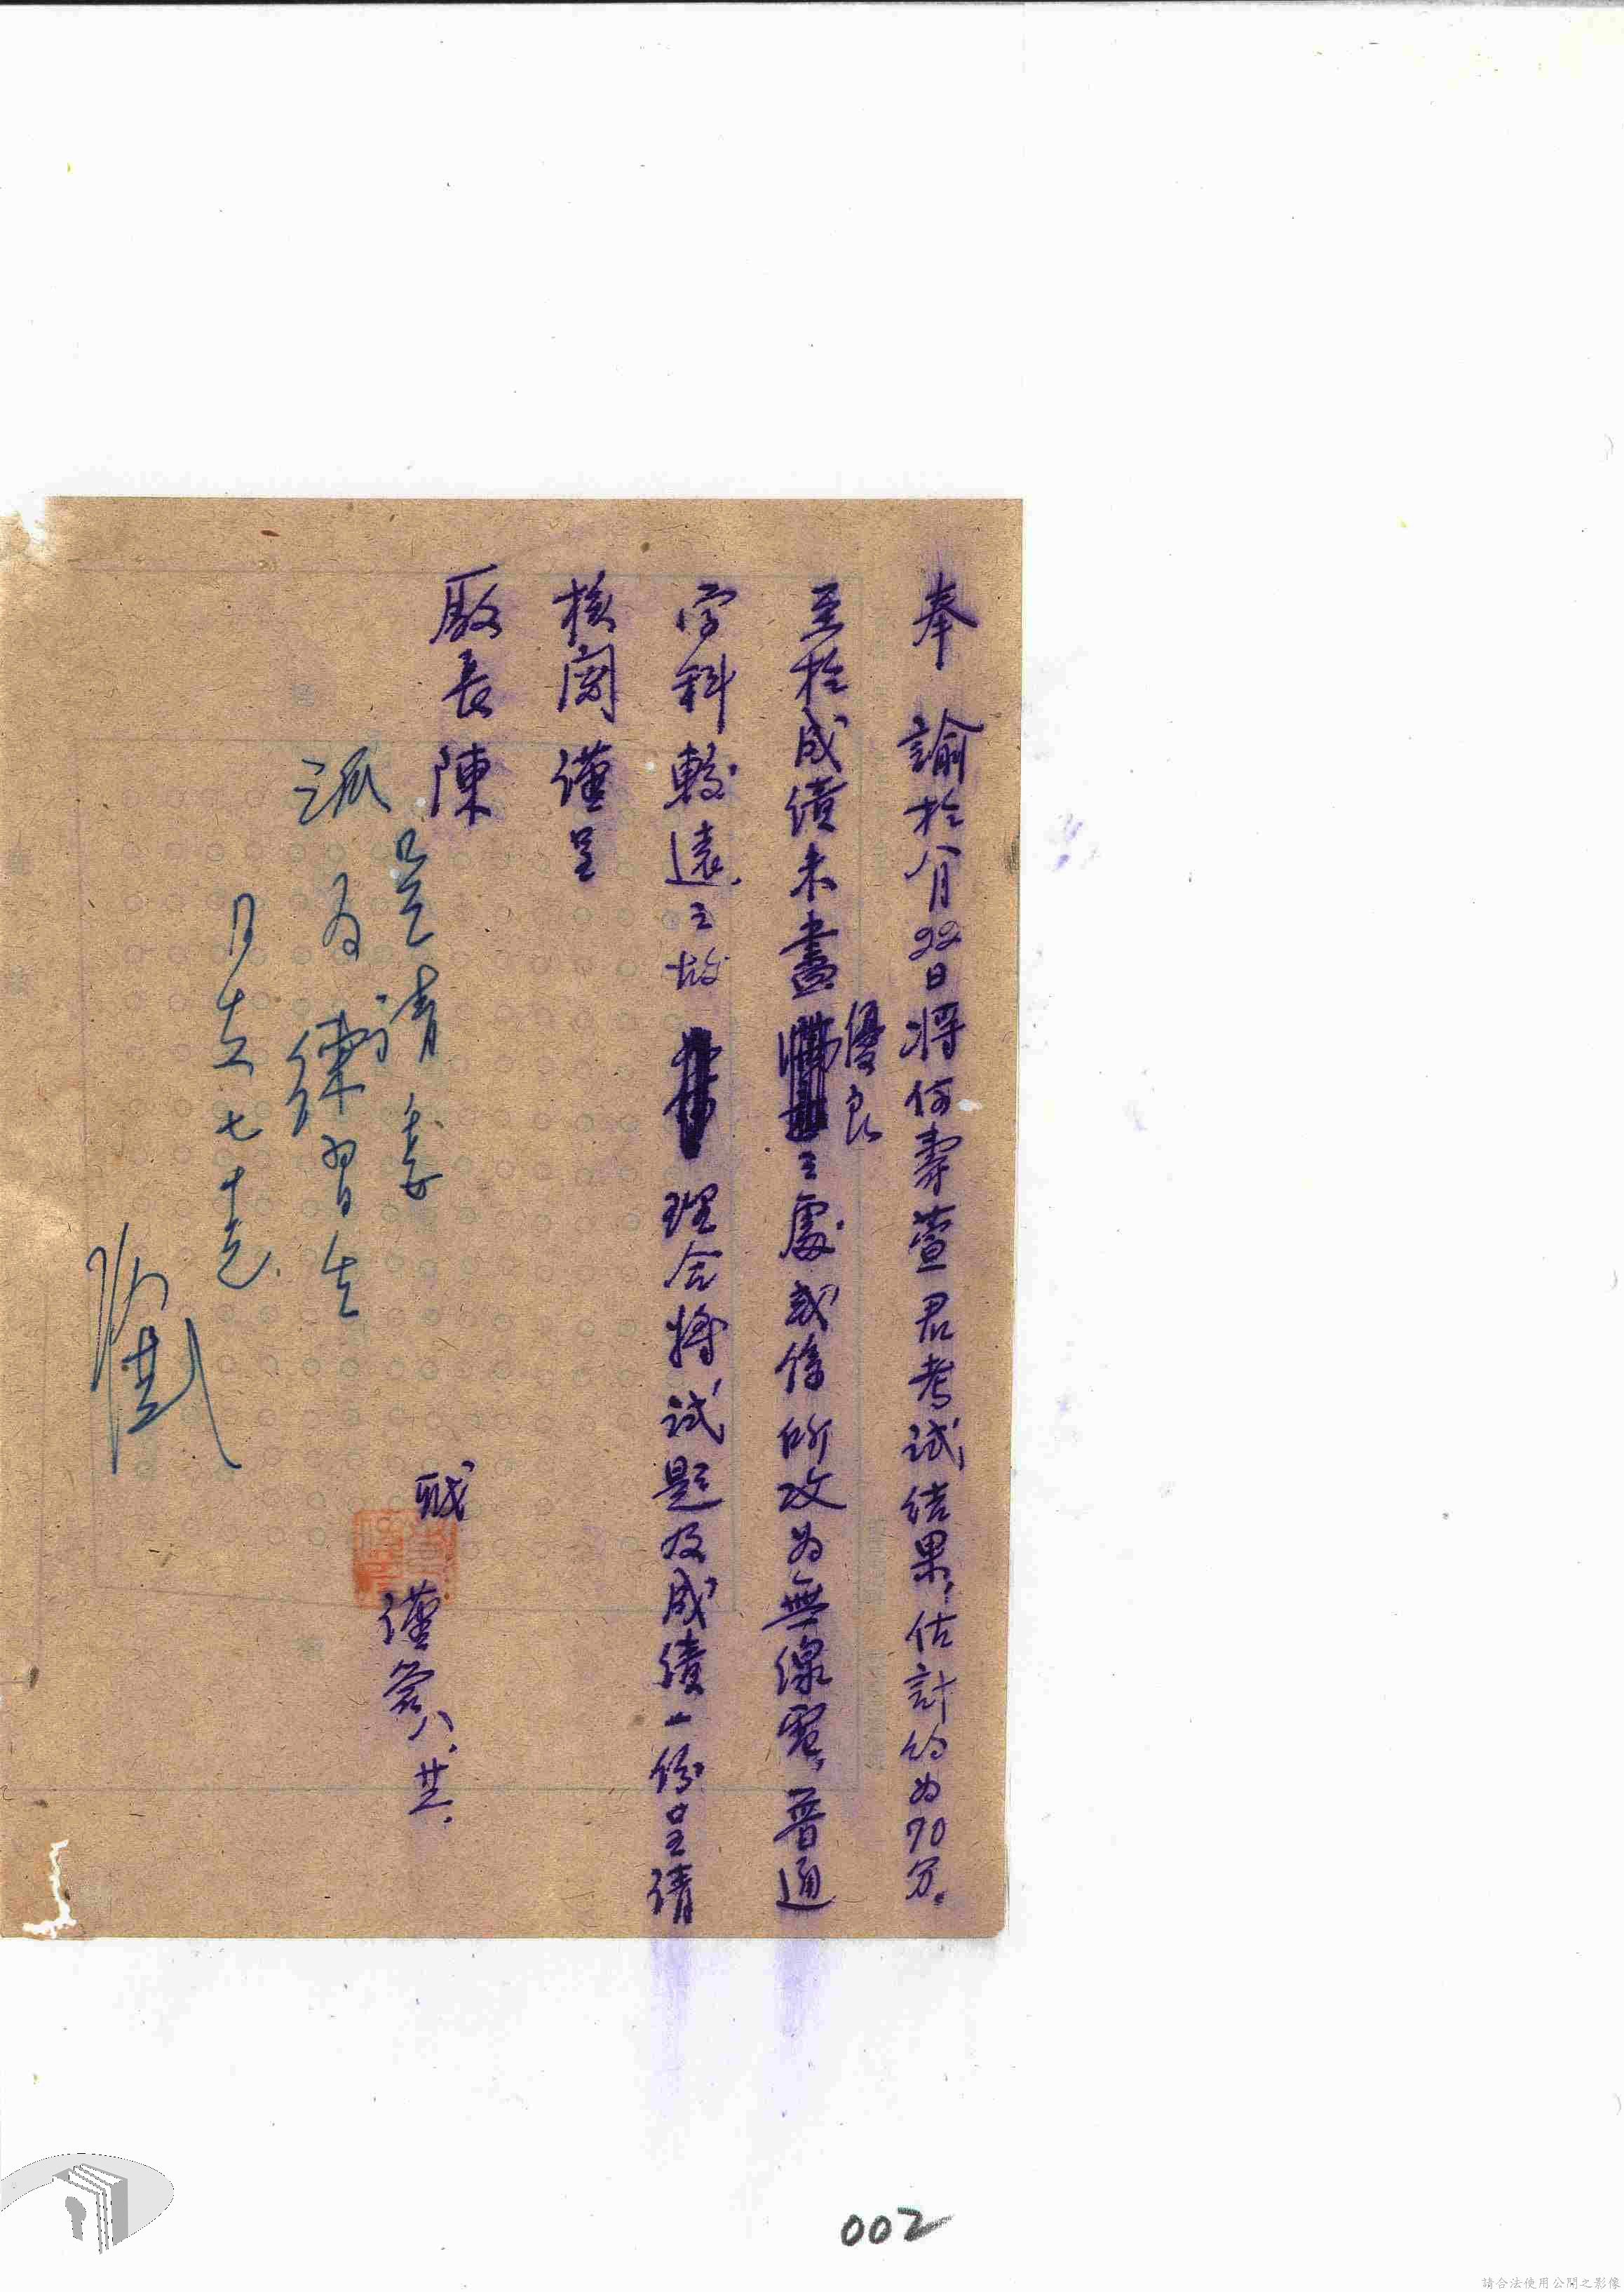 奉　諭於八月22日將何壽萱君考試結果，估計約為70分。
至於成績未盡優良之處或係所攻為無線電，普通
学科較遠之故理合將試題及成績一份呈請
核閱謹呈
厰長陳
職
謹簽八、廿三.
呈請委
派為練習生
月支七十元.
002
請合法使用公開之影像